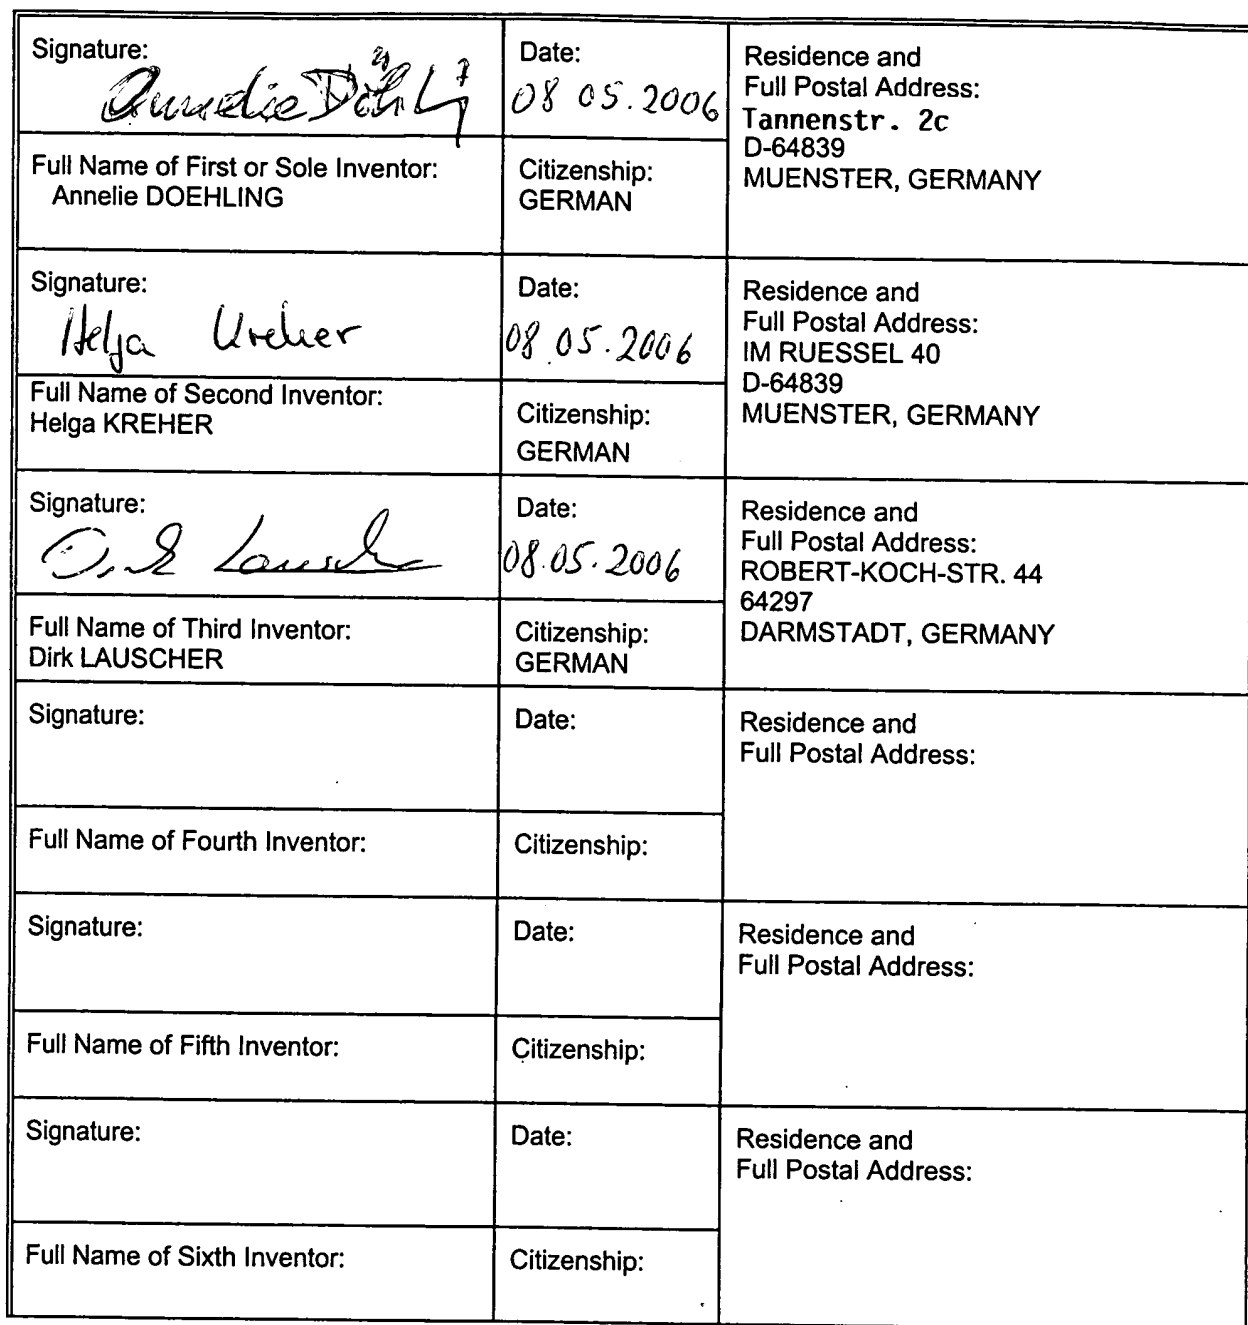 Signature:
Annelie Döhling
Date:
08 05.2006
Residence and
Full Postal Address:
Tannenstr. 2c
D-64839
MUENSTER, GERMANY
Full Name of First or Sole Inventor:
Annelie DOEHLING
Citizenship:
GERMAN
Signature:
Helga Kreher
Date:
08.05.2006
Residence and
Full Postal Address:
IM RUESSEL 40
D-64839
MUENSTER, GERMANY
Full Name of Second Inventor:
Helga KREHER
Citizenship:
GERMAN
Signature:
Dirk Lauscher
Date:
08.05.2006
Residence and
Full Postal Address:
ROBERT-KOCH-STR. 44
64297
DARMSTADT, GERMANY
Full Name of Third Inventor:
Dirk LAUSCHER
Citizenship:
GERMAN
Signature:
Date:
Residence and
Full Postal Address:
Full Name of Fourth Inventor:
Citizenship:
Signature:
Date:
Residence and
Full Postal Address:
Full Name of Fifth Inventor:
Citizenship:
Signature:
Date:
Residence and
Full Postal Address:
Full Name of Sixth Inventor:
Citizenship: